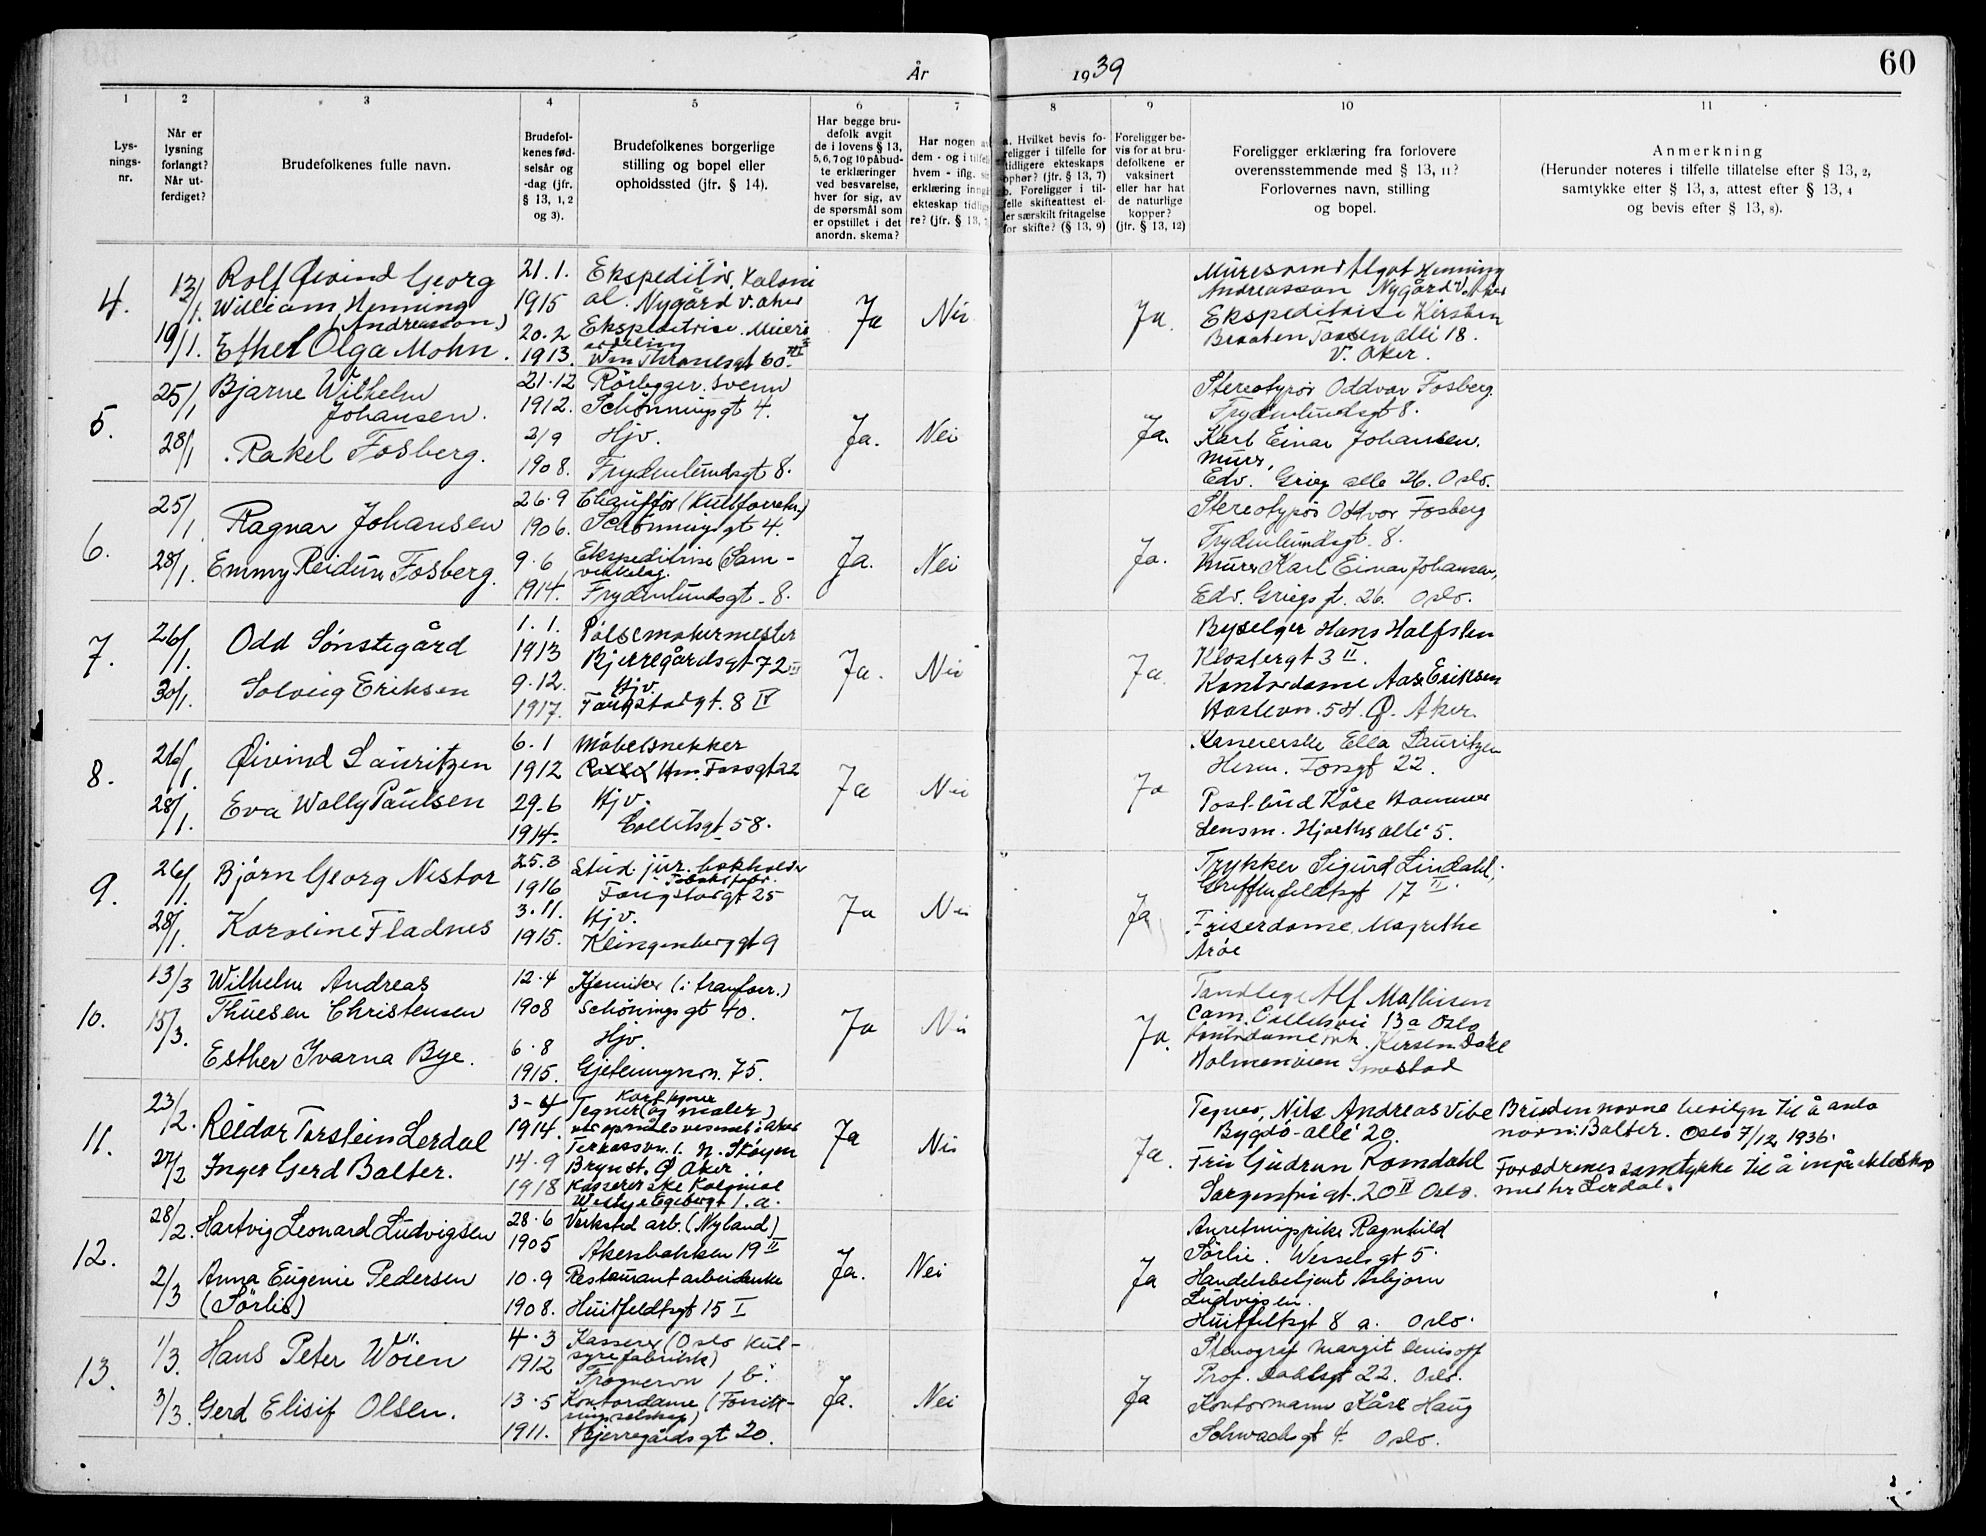 År 1939
60
1
2
3
4
5
6
7
8
9
10
11
Lys-
nings-
nr.
Når er
lysning
forlangt?
Når ut-
ferdiget?
Brudefolkenes fulle navn.
Brudefol-
kenes fød-
selsår og
-dag (jfr.
§ 13, 1, 2
og 3).
Brudefolkenes borgerlige
stilling og bopel eller
opholdssted (jfr. § 14).
Har begge bru-
defolk avgit
de i lovens § 13,
5, 6, 7 og 10 påbud-
te erklæringer
ved besvarelse,
hver for sig, av
de spørsmål som
er opstillet i det
anordn. skema?
Har nogen
dem - og i tilfelle
hvem - iflg.
erklæring inng
ekteskap tidlig
re? (jfr. § 13,
a. Hvilket bevis fo-
religger i tilfelle for
tidligere ekteskaps
ophør? (jfr. § 13, 7)
b. Foreligger i til-
felle skifteattest el-
ler særskilt fritagelse
for skifte? (§ 13, 9)
Foreligger be-
vis for at bru-
defolkene er
vaksinert
eller har hat
de naturlige
kopper?
(jfr. § 13, 12)
Foreligger erklæring fra forlovere
overensstemmende med § 13, 11?
Forlovernes navn, stilling
og bopel.
Anmerkning
(Herunder noteres i tilfelle tillatelse efter § 13, 2,
samtykke efter § 13, 3, attest efter § 13, 4
og bevis efter § 13, 8).
4.
13/1.
19/1.
Rolf Øivind Georg
William Henning
Andreasson
Ethel Olga Mohn.
21.1.
1915
20.2
1913.
Ekspeditør, Koloni
al. Nygård V. Aker
Ekspeditrise
Wm Thranesgt 60
Ja
Nei
Ja.
Henning
Andreasson Nygård V. Aker
Ekspeditrise Kirsten
Braaten Taasen alle 18.
V. Aker.
5.
25/1
28/1
Bjarne Wilhelm
Johansen.
Rakel Fosberg.
21.12
1912.
2/9
1908.
Rörlegger. svenn
Schønningsgt 4.
Hjv.
Frydenlundsgt 8.
Ja.
Nei
Ja.
Stereotypør Oddvar Fosberg.
Frydenlundsgt 8.
Karl Einar Johansen.
Murer,
Edv. Grieg alle 26. Oslo.
6.
25/1.
28/1.
Ragnar Johansen
Emmy Reidun Fosberg.
26.9
1906.
9.6
1914.
Chauffør (Kullforretn.)
Schønningsgt 4.
Ekspeditrise (Sam-
virkelag.
Frydenlundsgt. 8.
Ja.
Nei
Ja.
Stereotypør Oddvar Fosberg
Frydenlundsgt. 8.
Murer Karl Einar Johansen,
Edv. Griegs 26. Oslo.
7.
26/1.
30/1.
Odd Sønstegård
Solveig Eriksen
1.1.
1913
9.12.
1917.
Pølsemakermester
Bjerregårdsgt 72 III
Hjv.
Fougstadgt. 8 IV
Ja.
Nei
Ja.
Byselger Hans Halfsten
Klostergt 3 II.
Kontordame Aase Eriksen
Haslevn. 54. Ø. Aker.
8.
26/1.
28/1.
Øivind Lauritzen
Eva Wally Paulsen
6.1
1912
29.6
1914.
Möbelsnekker
Hm. Fossgt 22
Hjv.
Collettsgt 58.
Ja
Nei
Ja
Kassererske Ella Lauritzen
Herm. Fossgt 22.
Postbud Kåre Hammer
Lensm. Hjorths alle 5.
9.
26/1.
28/1.
Bjørn Georg Nestor
Karoline Fladnes
25.3
1916
3.11.
1915.
Stud. jur. bokholder
Fougstadgt 25
Hjv.
Klingenberggt 9
Ja
Nei
Ja
Trykker Sigurd Lindahl,
Griffenfeldtsgt 17 II.
Friserdame Magrethe
Årøe
10.
13/3
15/3.
Wilhelm Andreas
Thuesen Christensen
Esther Ivarna Bye.
12.4
1908
6.8
1915.
Kjemiker (i tranforr.)
Schönings gt 40.
Hjv.
Gjetemyrsvn. 75.
Ja
Nei
Ja.
Tandlege Alf Mathisen
Cam. Collettsvei 13a Oslo
Kontordame frk. Kirsten Dahl
Holmenveien Smestad
11.
23/2.
27/2
Reidar Torstein Lerdal
Inger Gerd Balter.
3-4
1914.
14.9
1918
Kart
Tegner (og maler)
ved opmålesvesenet i Aker
Terrassevn. 1. N. Skøyen
Brynst. Ø Aker
Kassererske Kolonial
Westye Egebergt 1.a.
Ja
Nei
Ja.
Tegner, Nils Andreas Vibe
Bygdø-alle 29.
Fru Gudrun Romdahl
Sorgenfrigt. 20 II Oslo.
Bruden navne bevilgn til å anta
navn: Balter. Oslo 7/12 1936.
Foreldrenes samtykke til å inngå ekteskap
med hr Lerdal.
12.
28/2.
2/3
Hartvig Leonard Ludvigsen
Anna Eugenie Pedersen
(Sörlie)
28.6
1905
10.9
1908.
Verksted arb. (Nyland)
Akersbakken 19 II
Restaurantarbeiderske
Huitfeldtsgt 15 I
Ja.
Nei
Ja
Anretningspike Ragnhild
Sörlie. Wesselsgt 5.
Handelsbetjent Asbjørn
Ludvigsen.
Huitfeltsgt 8 a. Oslo.
13.
1/3.
3/3.
Hans Peter Wöien
Gerd Elisif Olsen.
4.3
1912
13.5
1911.
Kasserer (Oslo Kul-
syrefabrikk)
Frognervn 1 b.
Kontordame (Forsik-
ringsselskap)
Bjerregårdsgt 20.
Ja.
Nei
Ja
Stenograf Margit Denisoff
Prof. Dahlsgt 22. Oslo.
Kontormann Kåre Haug
Schwachsgt 4. Oslo.